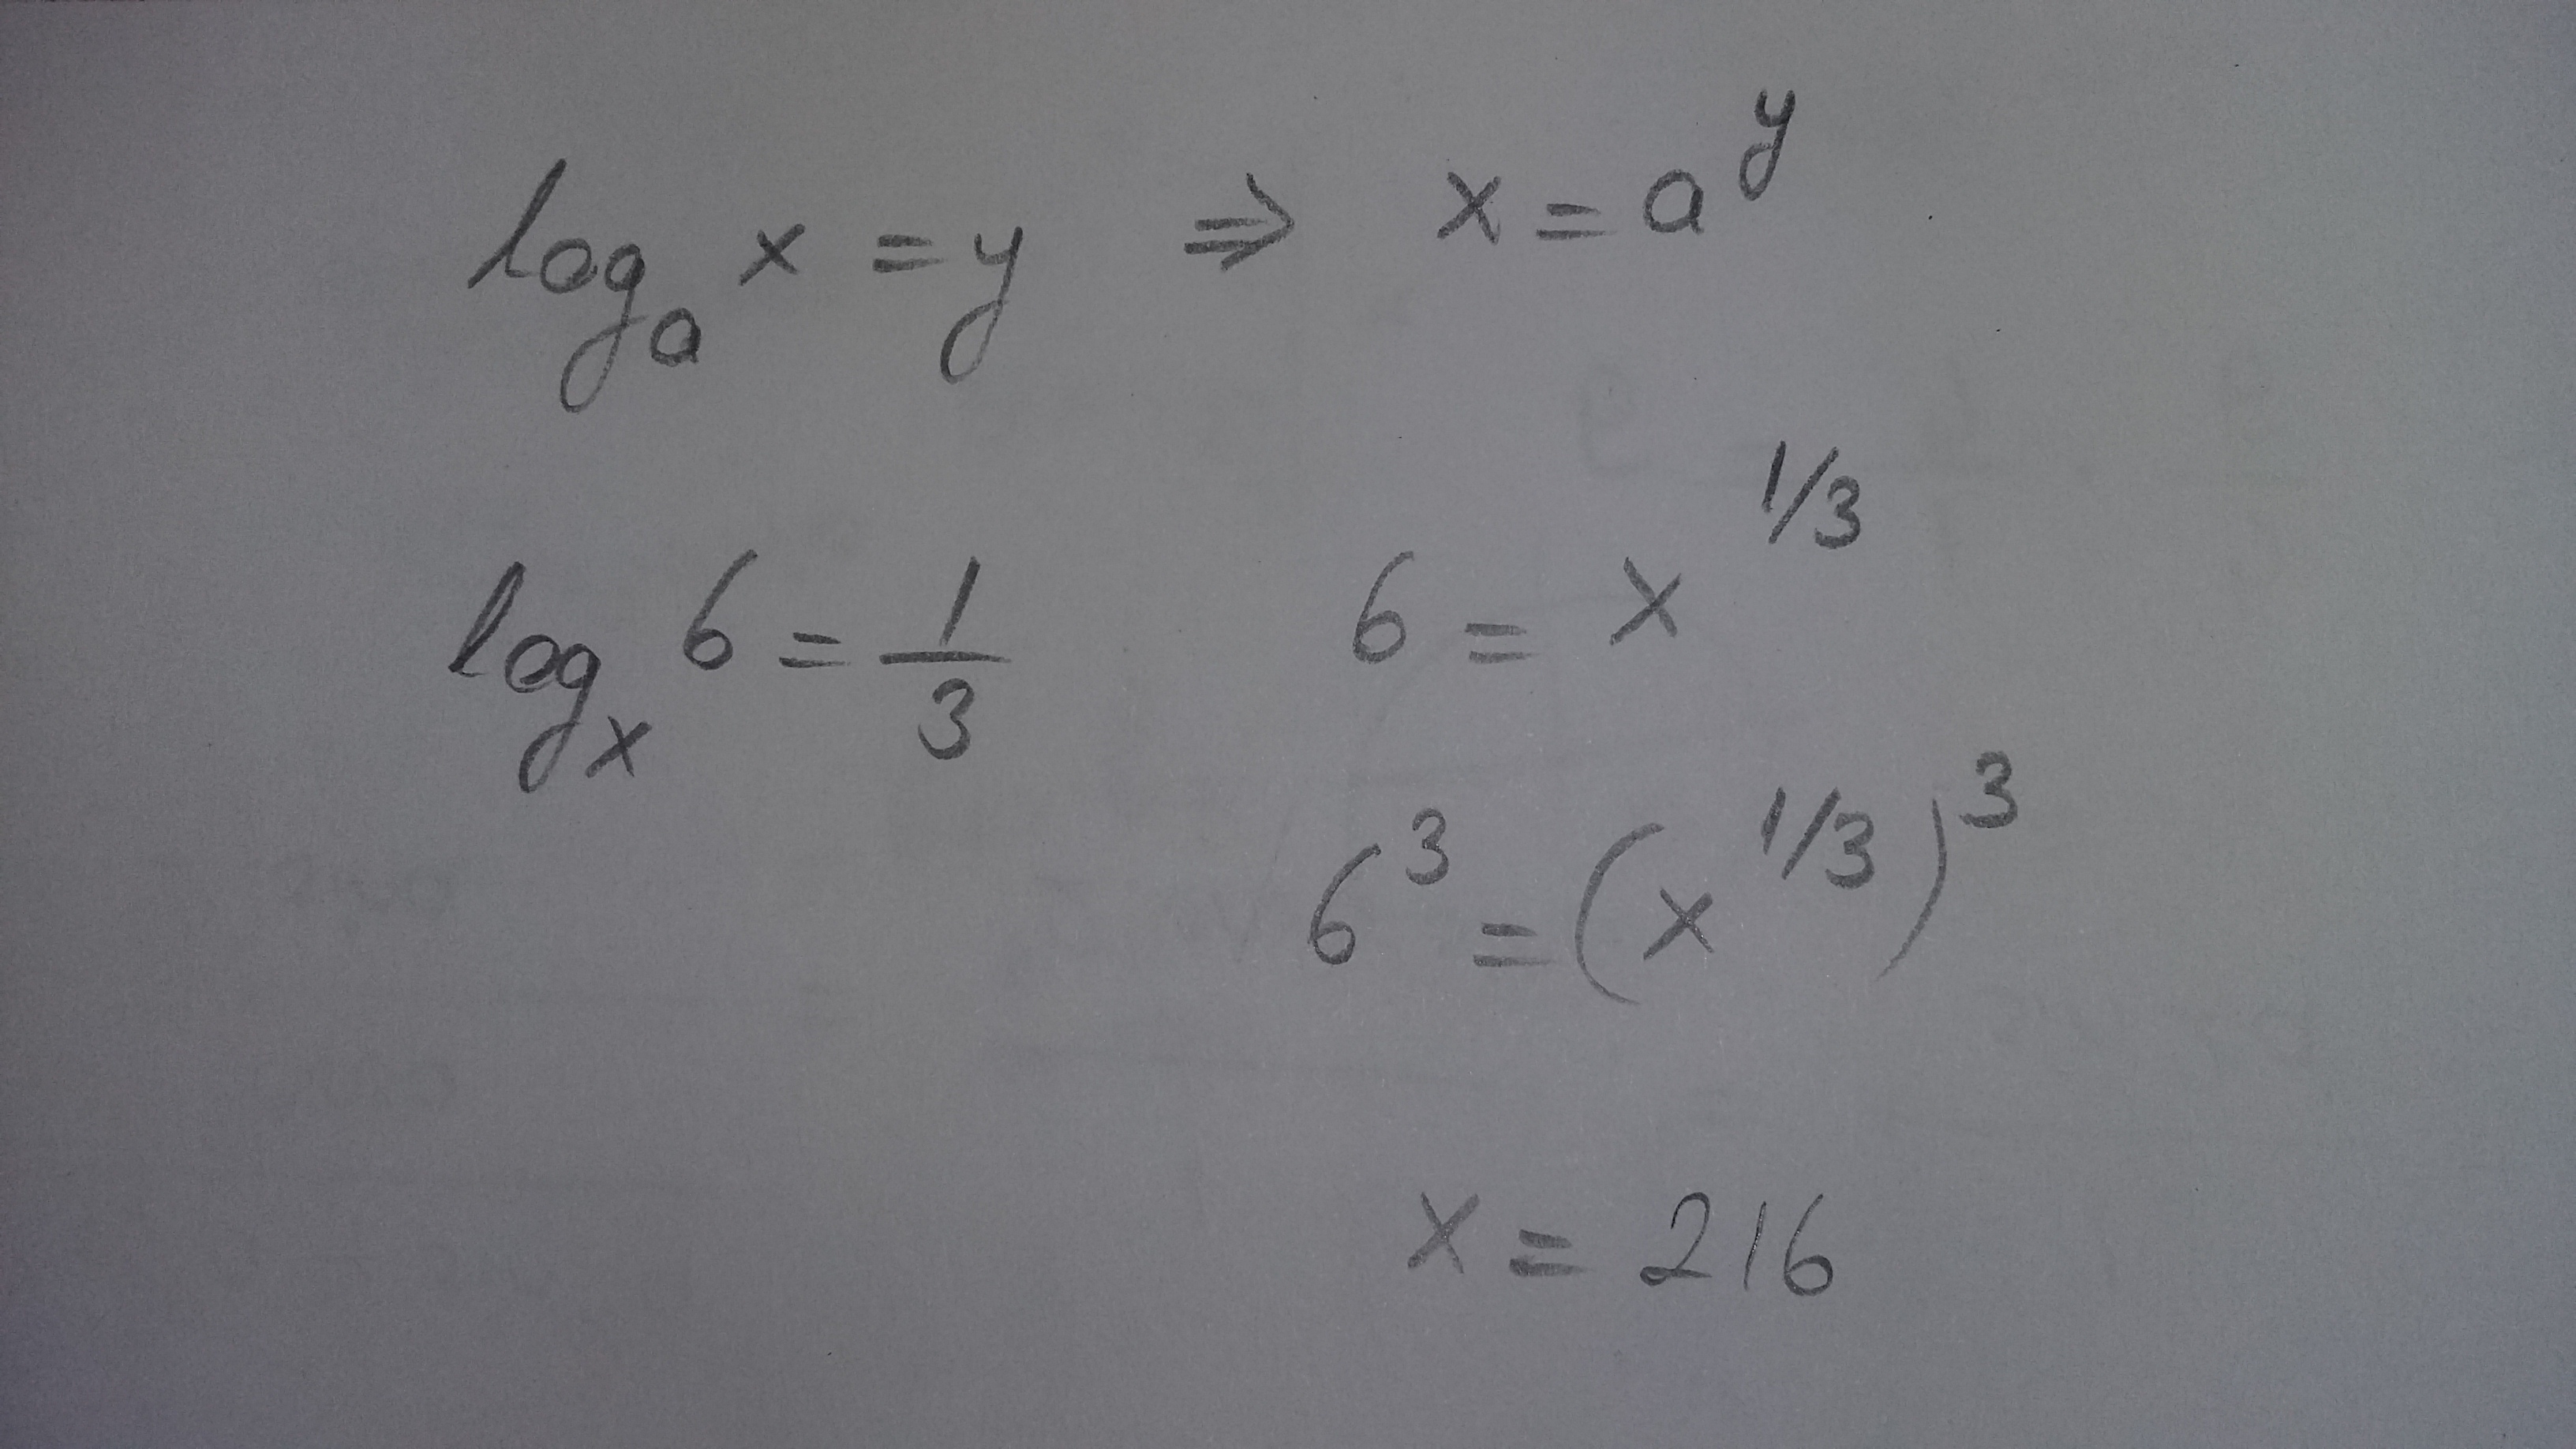 logₐ x = y ⇒ x = a^y
logₓ 6 = 1/3 6 = x^1/3
6^3 = (x^1/3)^3
x = 216